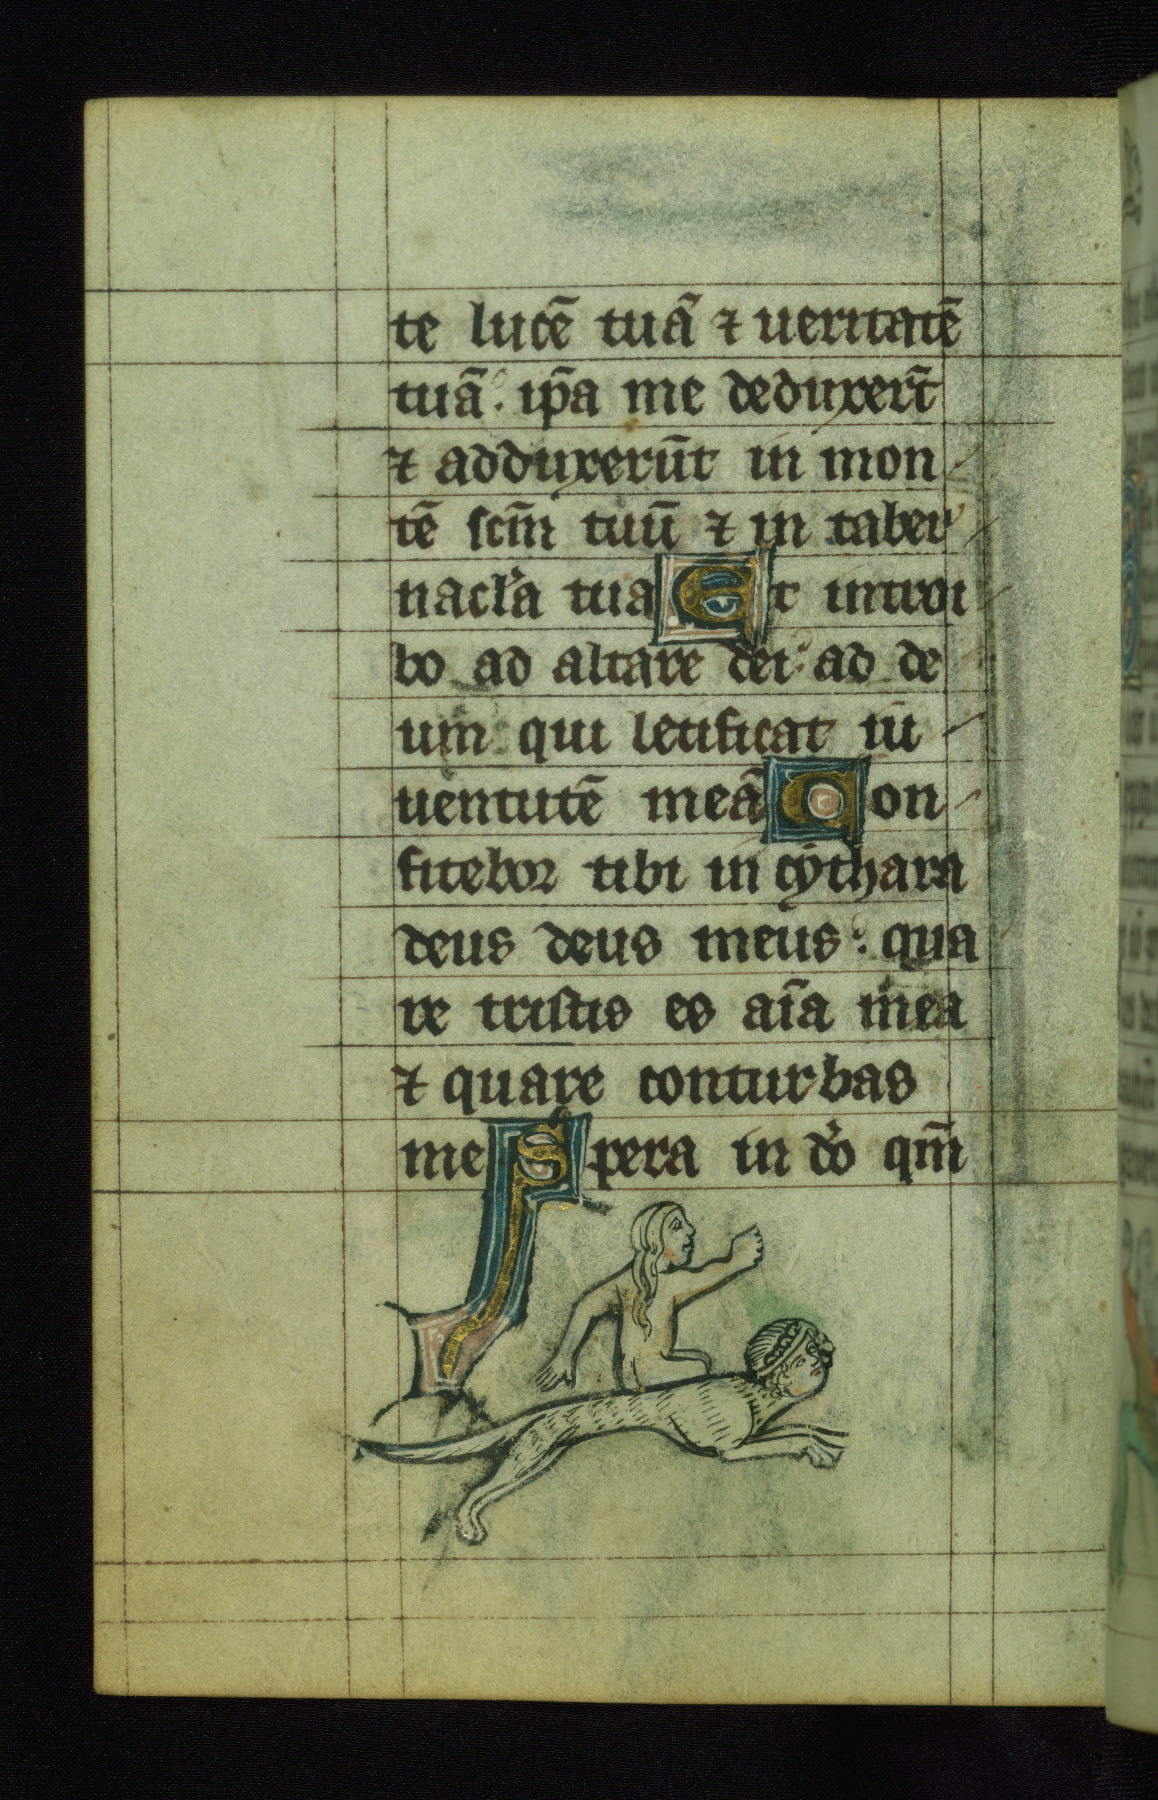 te lucē tuā ⁊ ueritatē
tuā. ip̄a me deduxer̄t
⁊ adduxerūt in mon
tē scm̄ tuū ⁊ in taber
nacl'a tua Et introi
bo ad altare dei: ad de
um qui letificat iu
uentutē meā Con
fitebor tibi in cythara
deus deus meus: qua
re tristis es aīa mea
⁊ quare conturbas
me Spera in dō qm̄